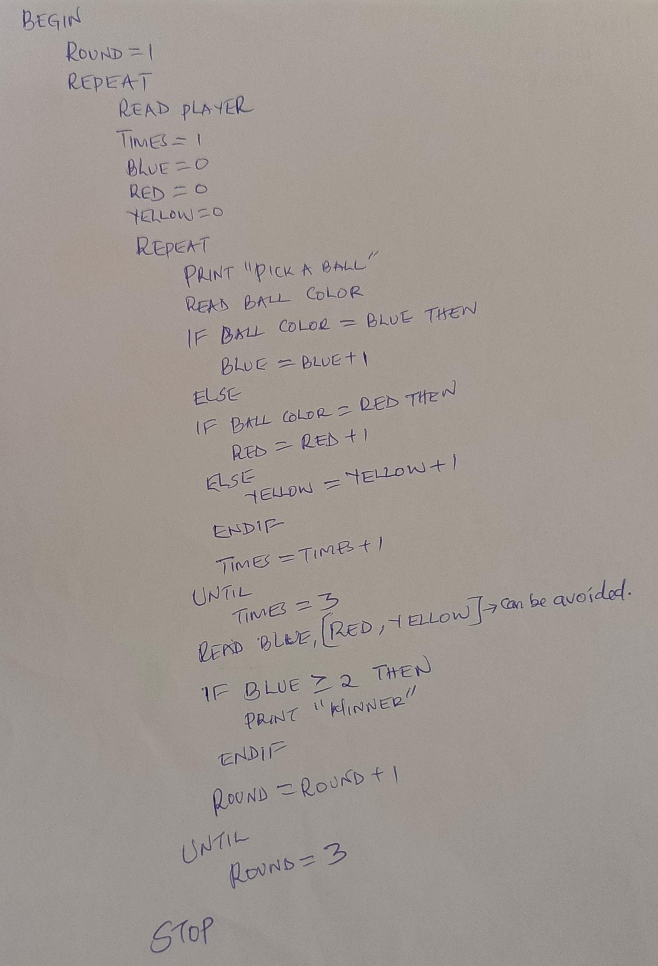 BEGIN
ROUND = 1
REPEAT
READ PLAYER
TIMES = 1
BLUE = 0
RED = 0
YELLOW = 0
REPEAT
PRINT "PICK A BALL"
READ BALL COLOR
IF BALL COLOR = BLUE THEN
BLUE = BLUE + 1
ELSE
IF BALL COLOR = RED THEN
RED = RED + 1
ELSE
YELLOW = YELLOW + 1
ENDIF
TIMES = TIMES + 1
UNTIL
TIMES = 3
READ BLUE, [RED, YELLOW] → can be avoided.
IF BLUE ≥ 2 THEN
PRINT "WINNER"
ENDIF
ROUND = ROUND + 1
UNTIL
ROUND = 3
STOP